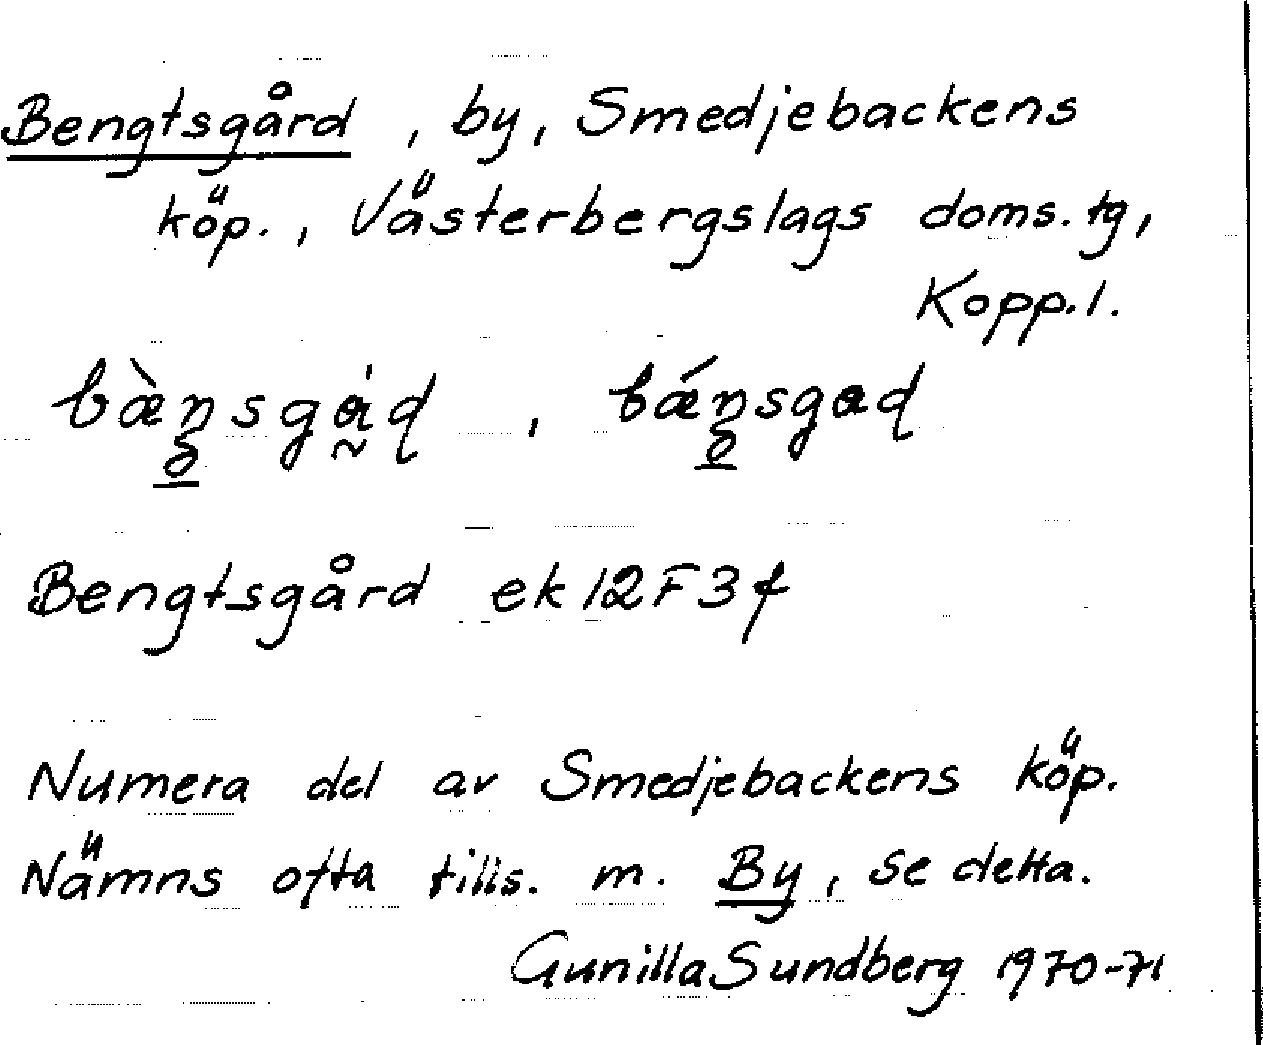 Bengtsgård, by, Smedjebackens
köp., Västerbergslags doms. tg,
Kopp. l.
Bengtsgård ek 12F3f
Numera del av Smedjebackens köp.
Nämns ofta tills. m. By, se detta.
Gunilla Sundberg 1970-71